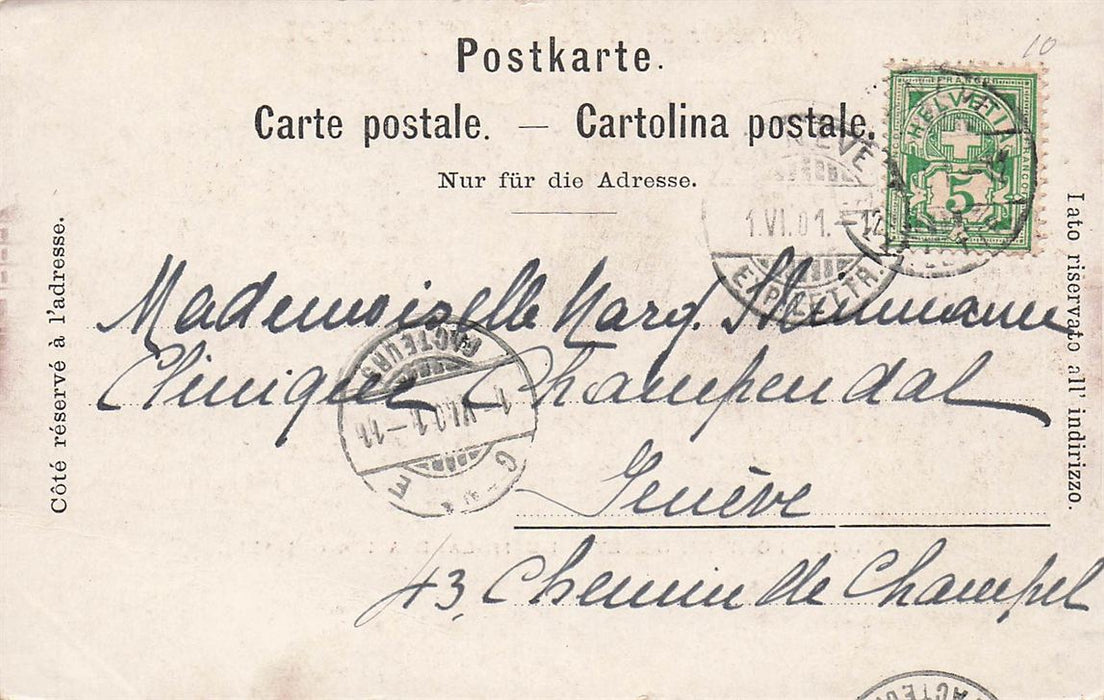 10
Postkarte.
Carte postale. — Cartolina postale.
Nur für die Adresse.
FRANCO
HELVETIA
FRANCO
5
1.VI.01.-12
EXP. LETTR.
Côté réservé à l'adresse.
I ato riservato all' indirizzo.
Mademoiselle Marg. Steinmann
Clinique Champendal
Genève
43, Chemin de Champel
FACTEURS
1-VI.01-11